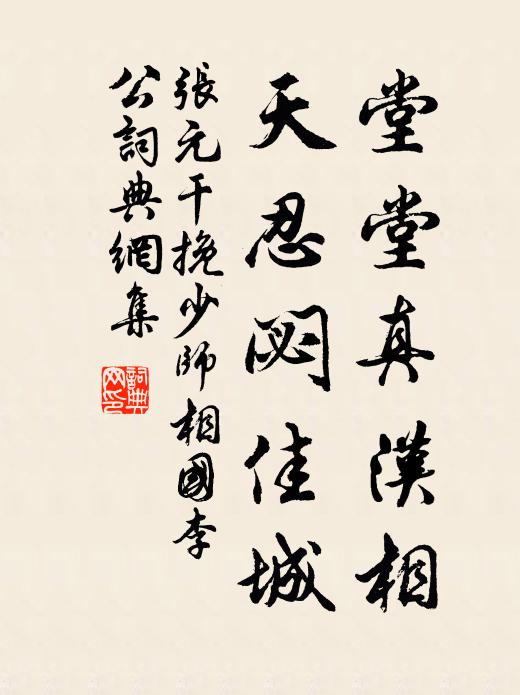 堂堂真漢相
天忍閟佳城
張元干挽少師相國李
公詞典網集
詞典網印